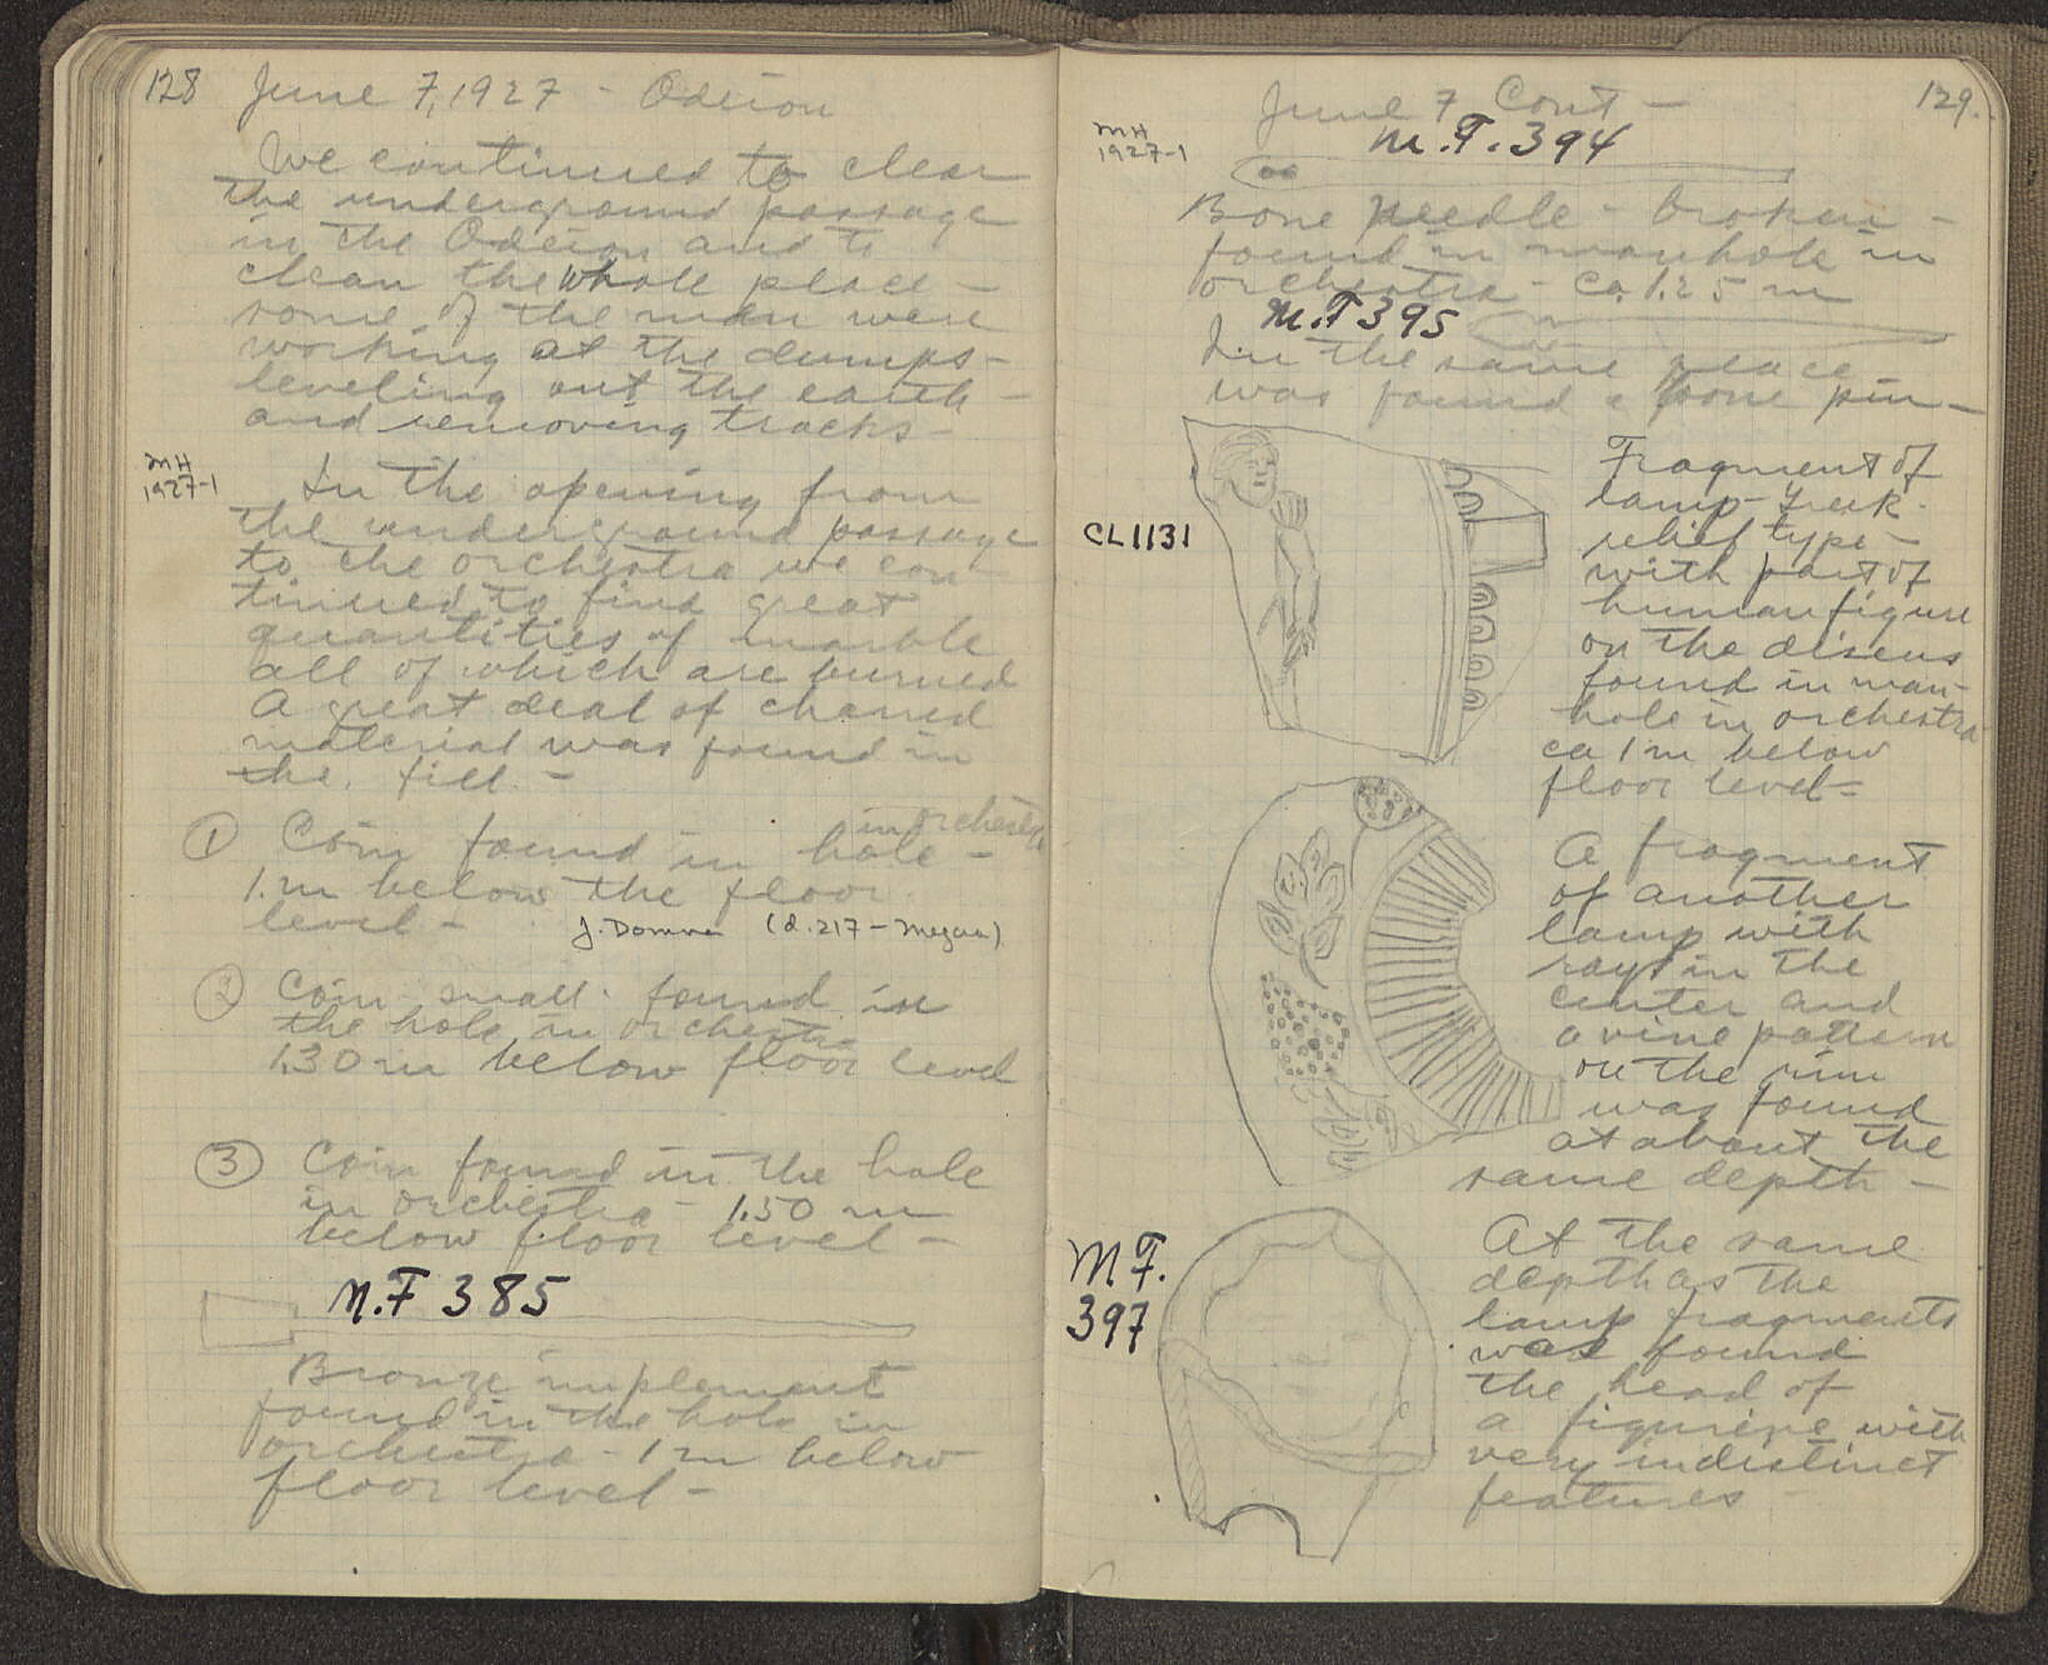 128 June 7, 1927 - Odeion
We continued to clear
the underground passage
in the Odeion and to
clean the whole place -
some of the men were
working at the dumps -
leveling out the earth -
and removing tracks -
MH
1927-1
In the opening from
the underground passage
to the orchestra we con-
tinued to find great
quantities of marble
all of which are burned
A great deal of charred
material was found in
the fill. -
in orchestra
① Coin found in hole -
1.m below the floor
level - J. Domna (d. 217 - Megara)
② Coin small. found in
the hole in orchestra
1.30 m below floor level
③ Coin found in the hole
in orchestra - 1.50 m
below floor level -
M.F 385
Bronze implement
found in the hole in
orchestra - 1 m below
floor level -
129.
June 7 Cont -
MH
1927-1
M.F. 394
Bone needle - broken -
found in manhole in
orchestra - ca. 1.25 m
M.F 395
In the same place
was found a bone pin -
CL1131
Fragment of
lamp - Greek
relief type -
with part of
human figure
on the discus
found in man-
hole in orchestra
ca 1 m below
floor level -
A fragment
of another
lamp with
rays in the
center and
a vine pattern
on the rim
was found
at about the
same depth -
MF.
397
At the same
depth as the
lamp fragments
was found
the head of
a figurine with
very indistinct
features -